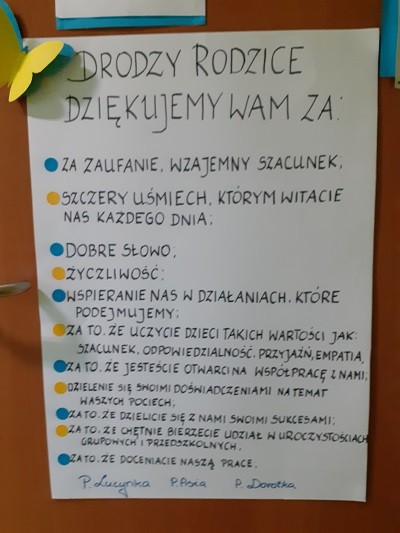 DRODZY RODZICE
DZIĘKUJEMY WAM ZA:
ZA ZAUFANIE, WZAJEMNY SZACUNEK;
SZCZERY UŚMIECH, KTÓRYM WITACIE
NAS KAŻDEGO DNIA;
DOBRE SŁOWO;
ŻYCZLIWOŚĆ;
WSPIERANIE NAS W DZIAŁANIACH, KTÓRE
PODEJMUJEMY;
ZA TO, ŻE UCZYCIE DZIECI TAKICH WARTOŚCI JAK:
SZACUNEK, ODPOWIEDZIALNOŚĆ, PRZYJAŹŃ, EMPATIA,
ZA TO, ŻE JESTEŚCIE OTWARCI NA WSPÓŁPRACĘ Z NAMI;
DZIELENIE SIĘ SWOIMI DOŚWIADCZENIAMI NA TEMAT
WASZYCH POCIECH;
ZA TO, ŻE DZIELICIE SIĘ Z NAMI SWOIMI SUKCESAMI;
ZA TO, ŻE CHĘTNIE BIERZECIE UDZIAŁ W UROCZYSTOŚCIACH
GRUPOWYCH I PRZEDSZKOLNYCH,
ZA TO, ŻE DOCENIACIE NASZĄ PRACĘ.
P. Lucynka P. Asia P. Dorotka